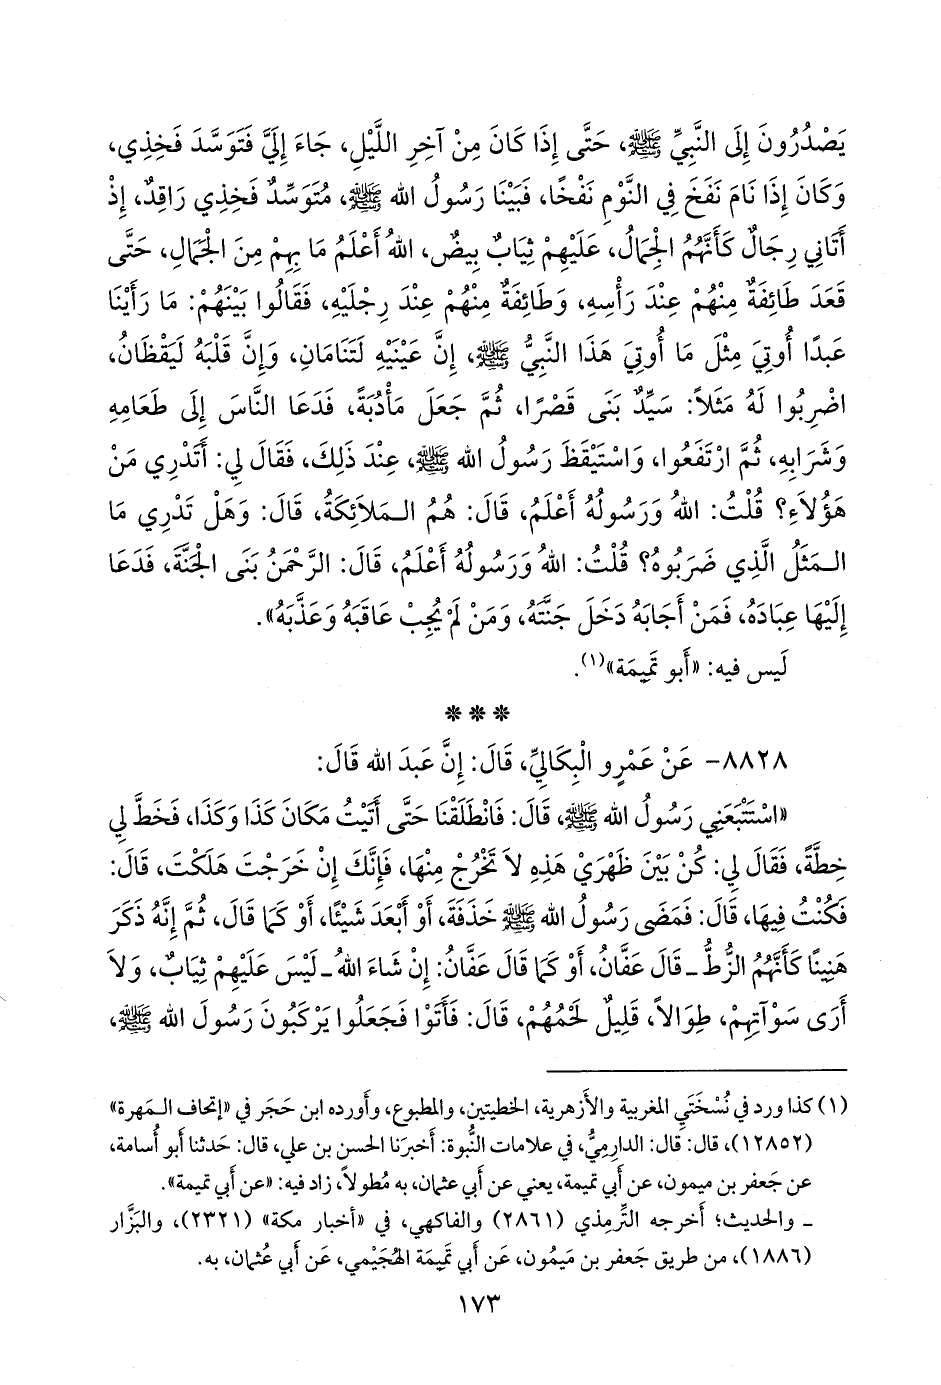 يَصْدُرُونَ إِلَى النَّبِيِّ ﷺ، حَتَّى إِذَا كَانَ مِنْ آخِرِ اللَّيْلِ، جَاءَ إِلَيَّ فَتَوَسَّدَ فَخِذِي،
وَكَانَ إِذَا نَامَ نَفَخَ فِي النَّوْمِ نَفْخًا، فَبَيْنَا رَسُولُ الله ﷺ، مُتَوَسِّدٌ فَخِذِي رَاقِدٌ، إِذْ
أَتَانِي رِجَالٌ كَأَنَّهُمُ الْجِمَالُ، عَلَيْهِمْ ثِيَابٌ بِيضٌ، اللهُ أَعْلَمُ مَا بِهِمْ مِنَ الْجَمَالِ، حَتَّى
قَعَدَ طَائِفَةٌ مِنْهُمْ عِنْدَ رَأْسِهِ، وَطَائِفَةٌ مِنْهُمْ عِنْدَ رِجْلَيْهِ، فَقَالُوا بَيْنَهُمْ: مَا رَأَيْنَا
عَبدًا أُوتِيَ مِثْلَ مَا أُوتِيَ هَذَا النَّبِيُّ ﷺ، إِنَّ عَيْنَيْهِ لَتَنَامَانِ، وَإِنَّ قَلْبَهُ لَيَقْظَانُ،
اضْرِبُوا لَهُ مَثَلاً: سَيِّدٌ بَنَى قَصْرًا، ثُمَّ جَعَلَ مَأْدُبَةً، فَدَعَا النَّاسَ إِلَى طَعَامِهِ
وَشَرَابِهِ، ثُمَّ ارْتَفَعُوا، وَاسْتَيْقَظَ رَسُولُ الله ﷺ، عِنْدَ ذَلِكَ، فَقَالَ لِي: أَتَدْرِي مَنْ
هَؤُلَاءِ؟ قُلْتُ: اللهُ وَرَسُولُهُ أَعْلَمُ، قَالَ: هُمُ الـمَلاَئِكَةُ، قَالَ: وَهَلْ تَدْرِي مَا
الـمَثَلُ الَّذِي ضَرَبُوهُ؟ قُلْتُ: اللهُ وَرَسُولُهُ أَعْلَمُ، قَالَ: الرَّحْمَنُ بَنَى الْجَنَّةَ، فَدَعَا
إِلَيْهَا عِبَادَهُ، فَمَنْ أَجَابَهُ دَخَلَ جَنَّتَهُ، وَمَنْ لَمْ يُجِبْ عَاقَبَهُ وَعَذَّبَهُ».
لَيس فيه: «أَبو تَمِيمَة»(١).
* * *
٨٨٢٨- عَنْ عَمْرٍو الْبِكَالِيِّ، قَالَ: إِنَّ عَبدَ الله قَالَ:
«اسْتَتْبَعَنِي رَسُولُ الله ﷺ، قَالَ: فَانْطَلَقْنَا حَتَّى أَتَيْتُ مَكَانَ كَذَا وَكَذَا، فَخَطَّ لِي
خِطَّةً، فَقَالَ لِي: كُنْ بَيْنَ ظَهْرَيْ هَذِهِ لاَ تَخْرُجْ مِنْهَا، فَإِنَّكَ إِنْ خَرَجْتَ هَلَكْتَ، قَالَ:
فَكُنْتُ فِيهَا، قَالَ: فَمَضَى رَسُولُ الله ﷺ خَذَفَةً، أَوْ أَبْعَدَ شَيْئًا، أَوْ كَمَا قَالَ، ثُمَّ إِنَّهُ ذَكَرَ
هَنِينًا كَأَنَّهُمُ الزُّطُّ ـ قَالَ عَفَّانُ، أَوْ كَمَا قَالَ عَفَّانُ: إِنْ شَاءَ اللهُ ـ لَيْسَ عَلَيْهِمْ ثِيَابٌ، وَلاَ
أَرَى سَوْآتِهِمْ، طِوَالاً، قَلِيلٌ لَحْمُهُمْ، قَالَ: فَأَتَوْا فَجَعَلُوا يَرْكَبُونَ رَسُولَ الله ﷺ،
(١) كذا ورد في نُسْخَتَيِ المغربية والأَزهرية، الخطيتين، والمطبوع، وأَورده ابن حَجَر في «إتحاف الـمَهرة»
(١٢٨٥٢)، قال: قال: الدارِمِيُّ، في علامات النُّبوة: أَخبرَنا الحسن بن علي، قال: حَدثنا أَبو أُسامة،
عن جَعفر بن ميمون، عن أَبي تميمة، يعني عن أَبي عثمان، به مُطولاً، زاد فيه: «عن أَبي تميمة».
ـ والحديث؛ أَخرجه التِّرمِذي (٢٨٦١) والفاكهي، في «أخبار مكة» (٢٣٢١)، والبَزَّار
(١٨٨٦)، من طريق جَعفر بن مَيمُون، عَن أَبي تَمِيمَة الهُجَيْمي، عَن أَبي عُثمان، به.
١٧٣